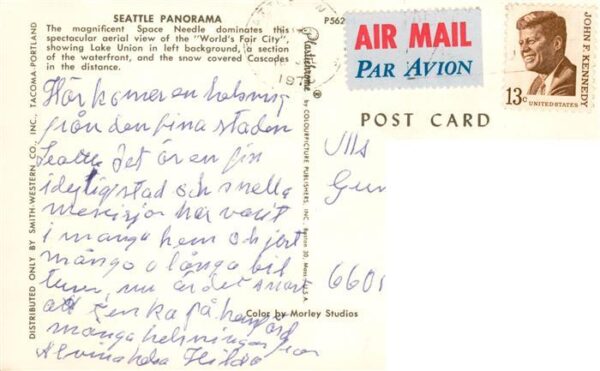 SEATTLE PANORAMA
The magnificent Space Needle dominates this
spectacular aerial view of the "World's Fair City",
showing Lake Union in left background, a section
of the waterfront, and the snow covered Cascades
in the distance.
P562
DISTRIBUTED ONLY BY SMITH-WESTERN CO., INC., TACOMA-PORTLAND
Plastichrome ® by COLOURPICTURE PUBLISHERS, INC., Boston 30, Mass. U.S.A.
AIR MAIL
PAR AVION
JOHN F. KENNEDY
13c UNITED STATES
POST CARD
Här kommer en helsning
från den fina staden
Seattle det är en fin
idylig stad och snella
har varit
i många hem och jort
många långa bil
turer, nu är det snart
att tenka på
många helsningar från
Hilda
660
Color by Morley Studios